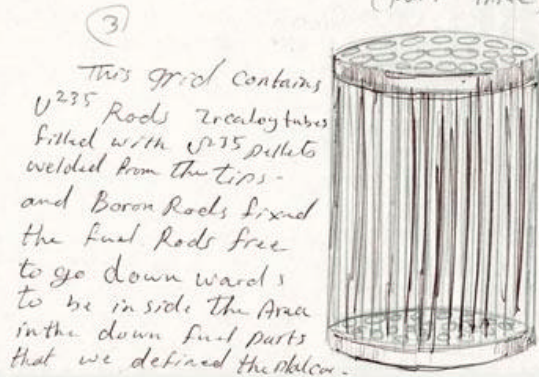 (part three)
3
This grid contains
U235 Rods zrcaloy tubes
filled with U235 pellets
welded from the tips -
and Boron Rods fixed
the fuel Rods free
to go down wards
to be inside the Area
in the down fuel parts
that we defined the